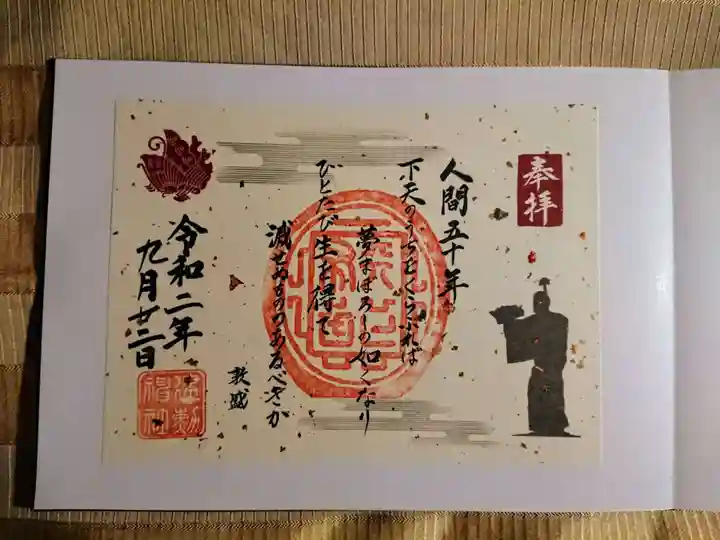 奉拝
人間五十年
下天のうちをくらぶれば
夢まぼろしの如くなり
ひとたび生を得て
滅せぬものあるべきか
敦盛
令和二年
九月廿二日
建勲神社